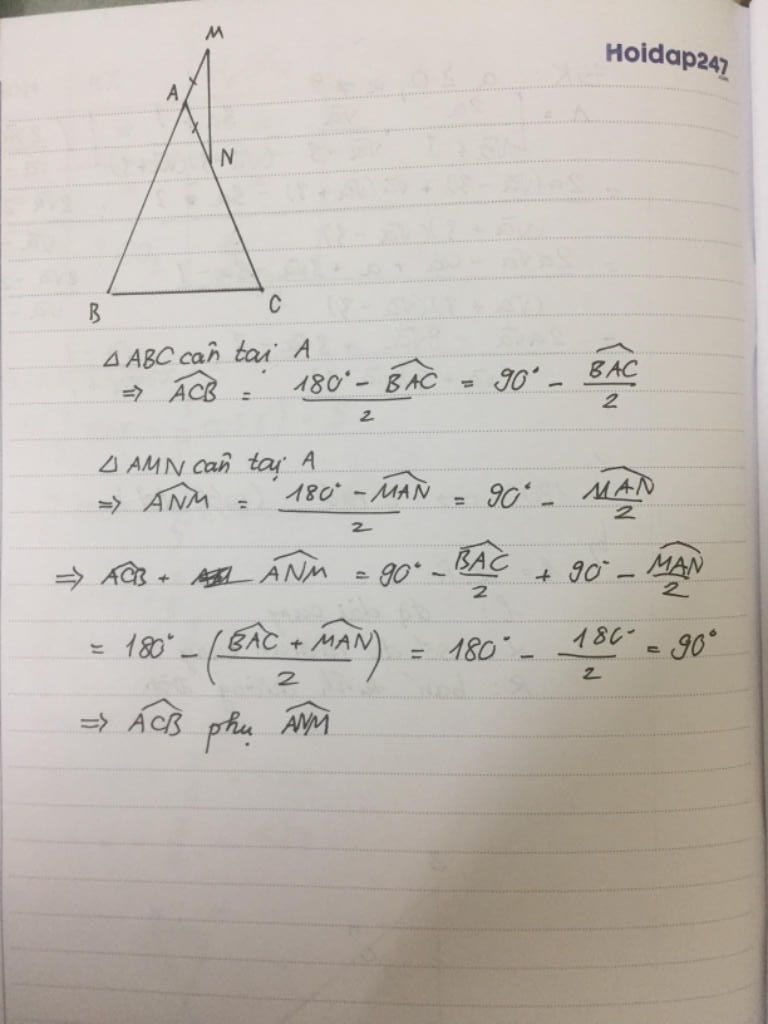 Hoidap247
.com
M
A
N
B
C
△ABC cân tại A
=> \widehat{ACB} = \frac{180° - \widehat{BAC}}{2} = 90° - \frac{\widehat{BAC}}{2}
△AMN cân tại A
=> \widehat{ANM} = \frac{180° - \widehat{MAN}}{2} = 90° - \frac{\widehat{MAN}}{2}
=> \widehat{ACB} + \widehat{ANM} = 90° - \frac{\widehat{BAC}}{2} + 90° - \frac{\widehat{MAN}}{2}
= 180° - (\frac{\widehat{BAC} + \widehat{MAN}}{2}) = 180° - \frac{180°}{2} = 90°
=> \widehat{ACB} phụ \widehat{ANM}